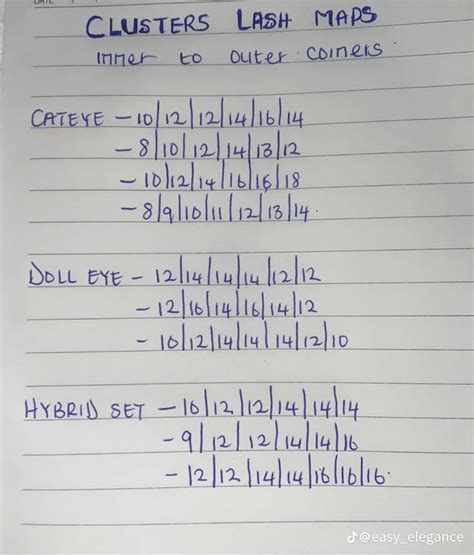 CLUSTERS LASH MAPS
inner to outer corners
CATEYE - 10/12/12/14/16/14
- 8/10/12/14/13/12
- 10/12/14/16/16/18
- 8/9/10/11/12/13/14.
DOLL EYE - 12/14/14/14/12/12
- 12/16/14/16/14/12
- 10/12/14/14/14/12/10
HYBRID SET - 10/12/12/14/14/14
- 9/12/12/14/14/16
- 12/12/14/14/16/16/16.
@easy_elegance